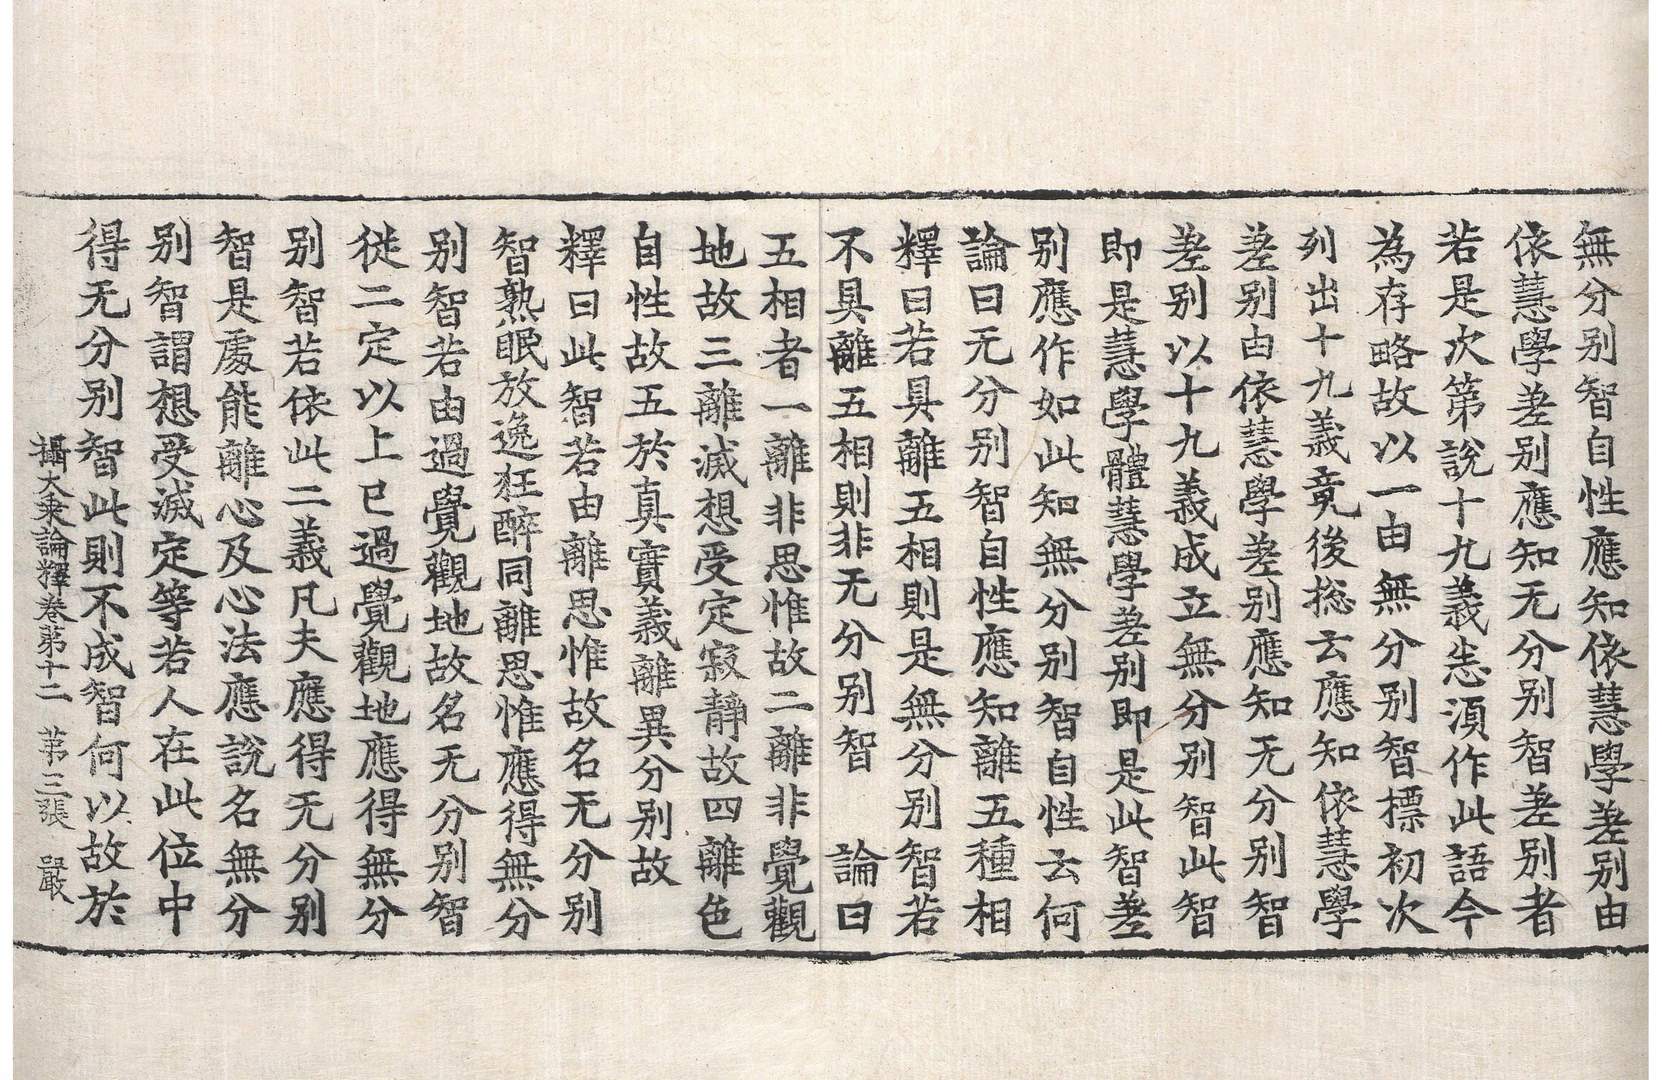 無分别智自性應知依慧學差别由
依慧學差别應知无分别智差别者
若是次第說十九義悉湏作此語今
為存略故以一由無分别智標初次
列出十九義竟後揔云應知依慧學
差别由依慧學差别應知无分别智
差别以十九義成立無分别智此智
即是慧學體慧學差别即是此智差
别應作如此知無分别智自性云何
論曰无分别智自性應知離五種相
釋曰若具離五相則是無分别智若
不具離五相則非无分别智　論曰
五相者一離非思惟故二離非覺觀
地故三離滅想受定寂静故四離色
自性故五於真實義離異分别故
釋曰此智若由離思惟故名无分别
智熟眠放逸狂醉同離思惟應得無分
别智若由過覺觀地故名无分别智
從二定以上已過覺觀地應得無分
别智若依此二義凡夫應得无分别
智是處能離心及心法應說名無分
别智謂想受滅定等若人在此位中
得无分别智此則不成智何以故於
攝大乗論釋卷第十二　第三張　嚴